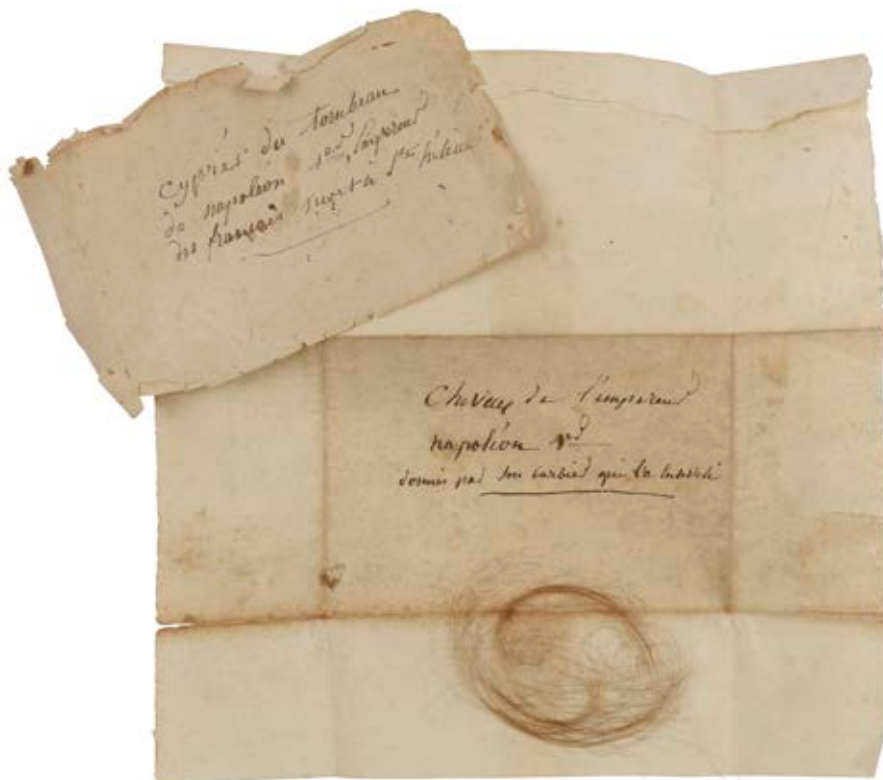 cyprès du tombeau
de napoléon 1er, Empereur
des français mort à Ste hélène
Cheveux de l'empereur
napoléon 1er
donnés par son barbier qui l'a